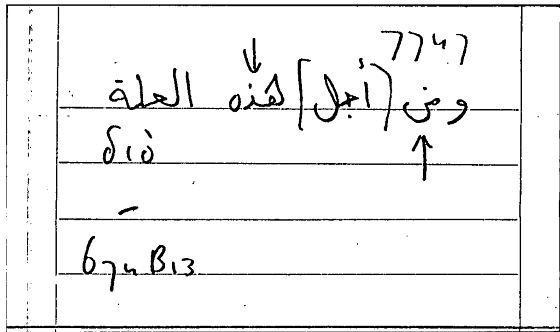 7747
ومن (أجل) هذه العلة
διό
674 B13